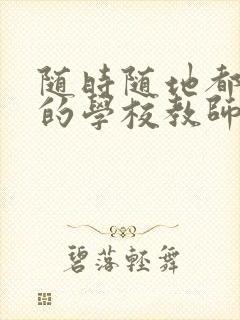 随時随地都
的學校教師
碧落輕舞